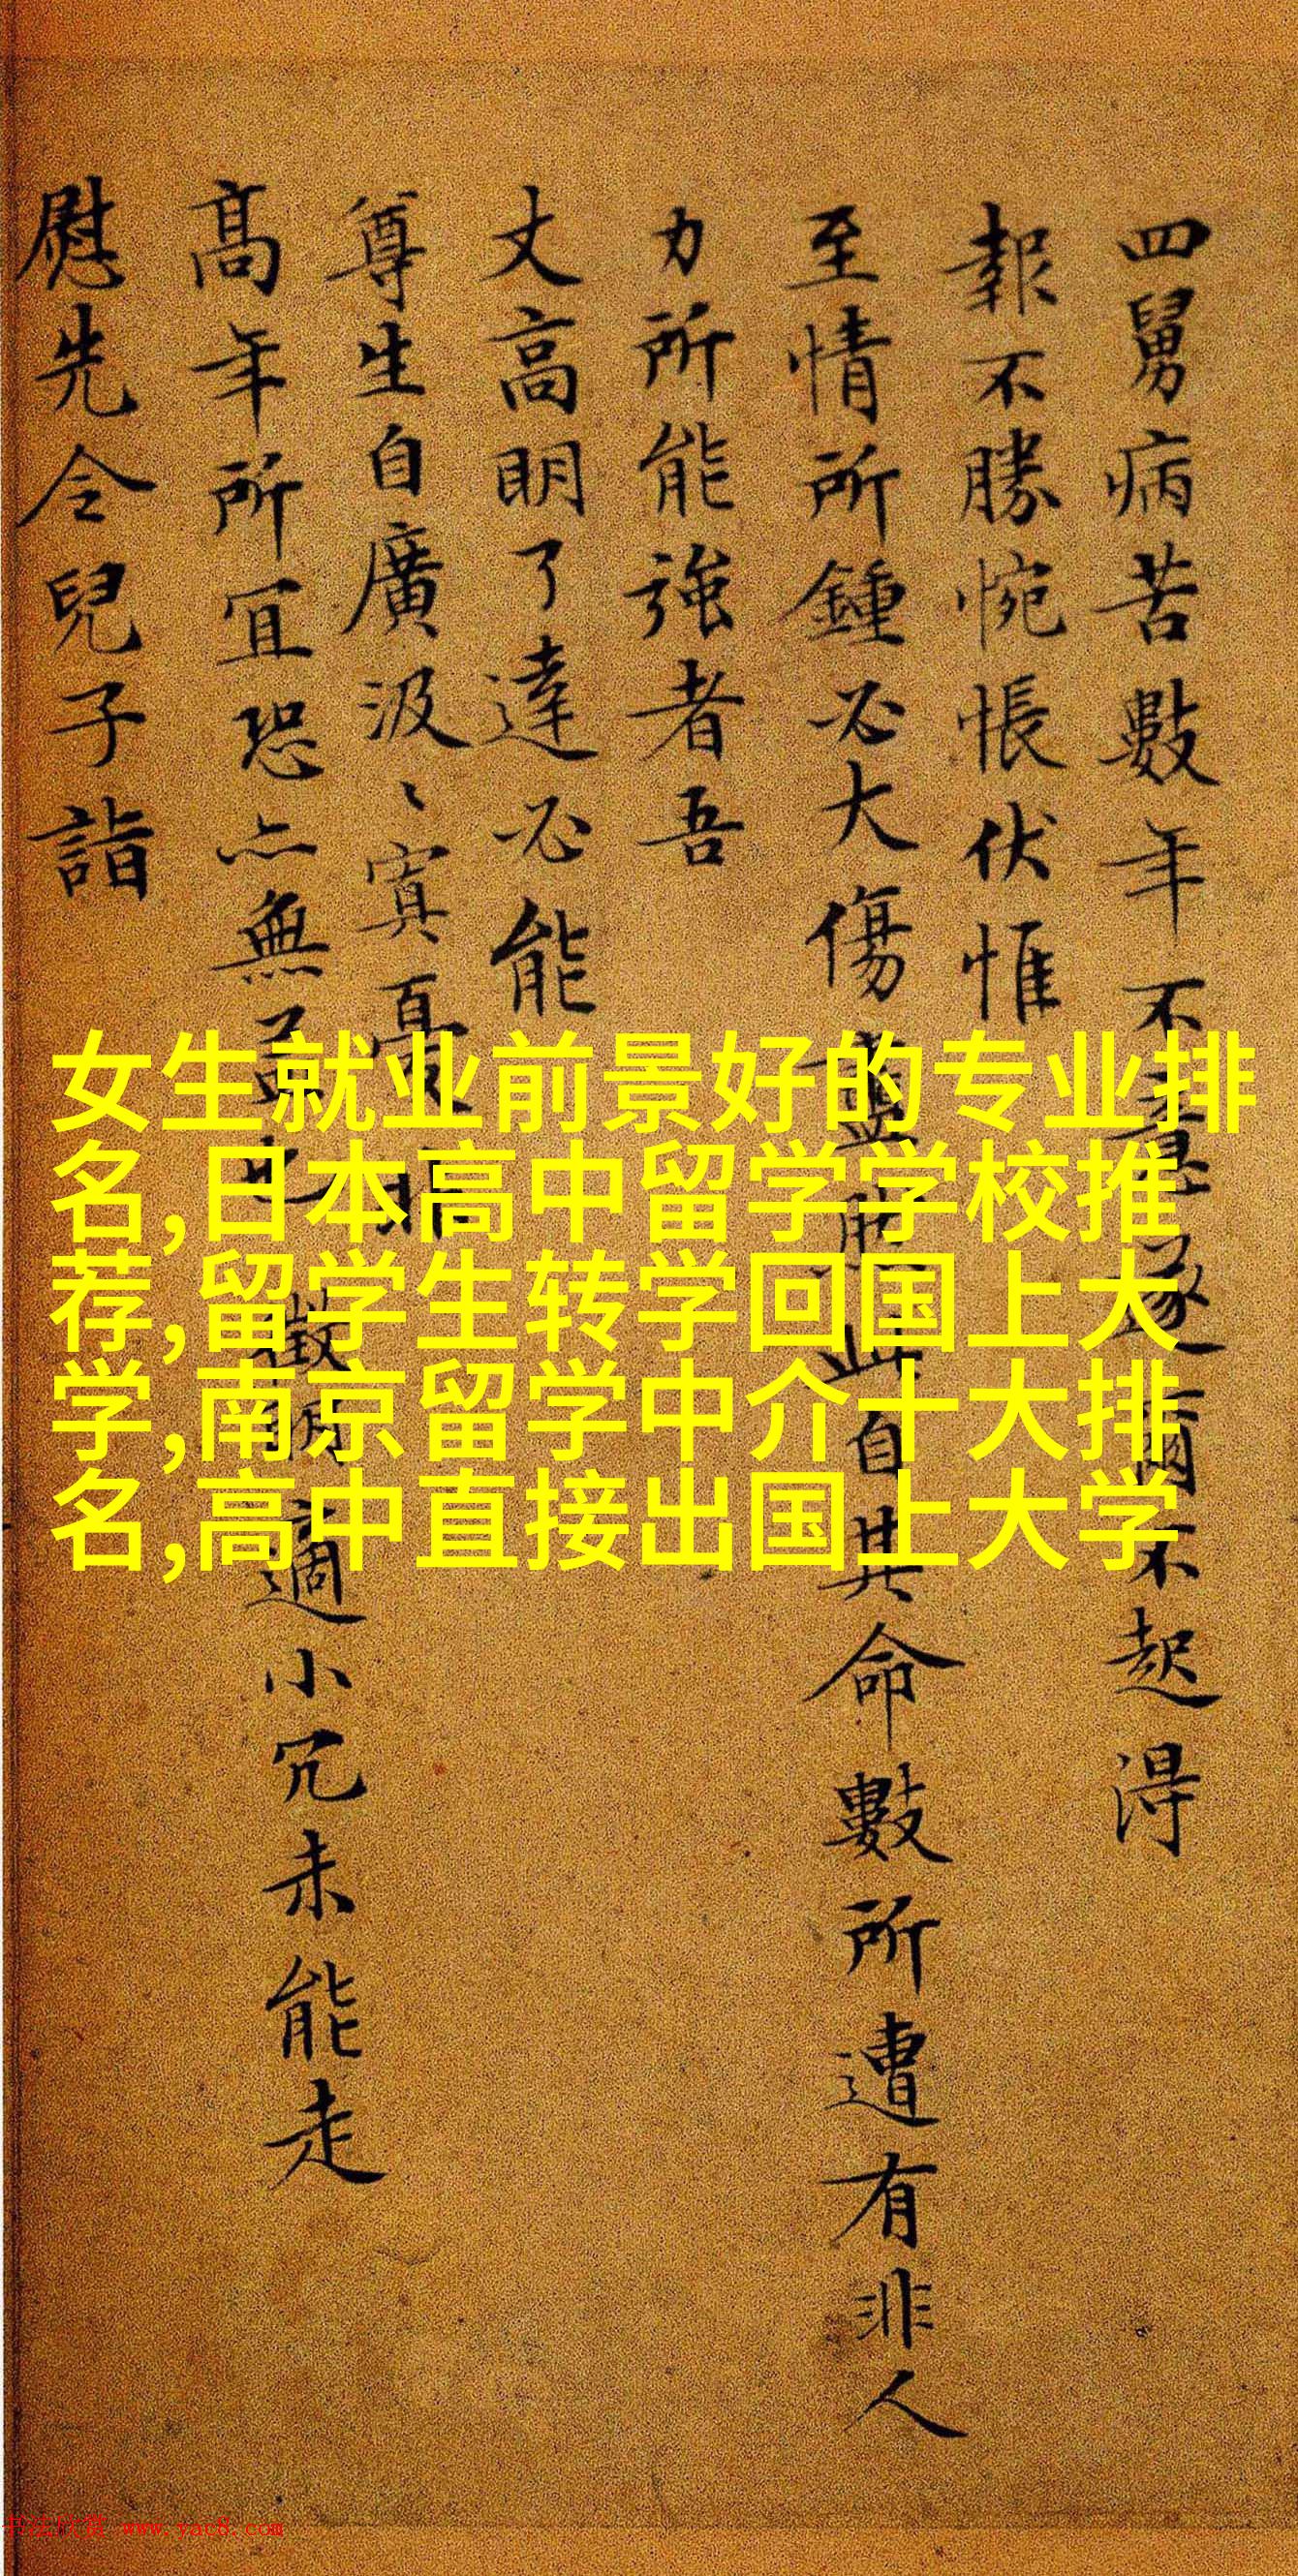 四舅病苦數年不
起得
報不勝惋悵伏惟
至情所鍾必大傷
自其命數所遭有非人
力所能強者吾
丈高明了達必能
尊生自廣汲〻寘
高年所宜恐亦無
適小冗未能走
慰先令兒子詣
女生就业前景好的专业排
名,日本高中留学学校推
荐,留学生转学回国上大
学,南京留学中介十大排
名,高中直接出国上大学
书法欣赏 www.yac8.com